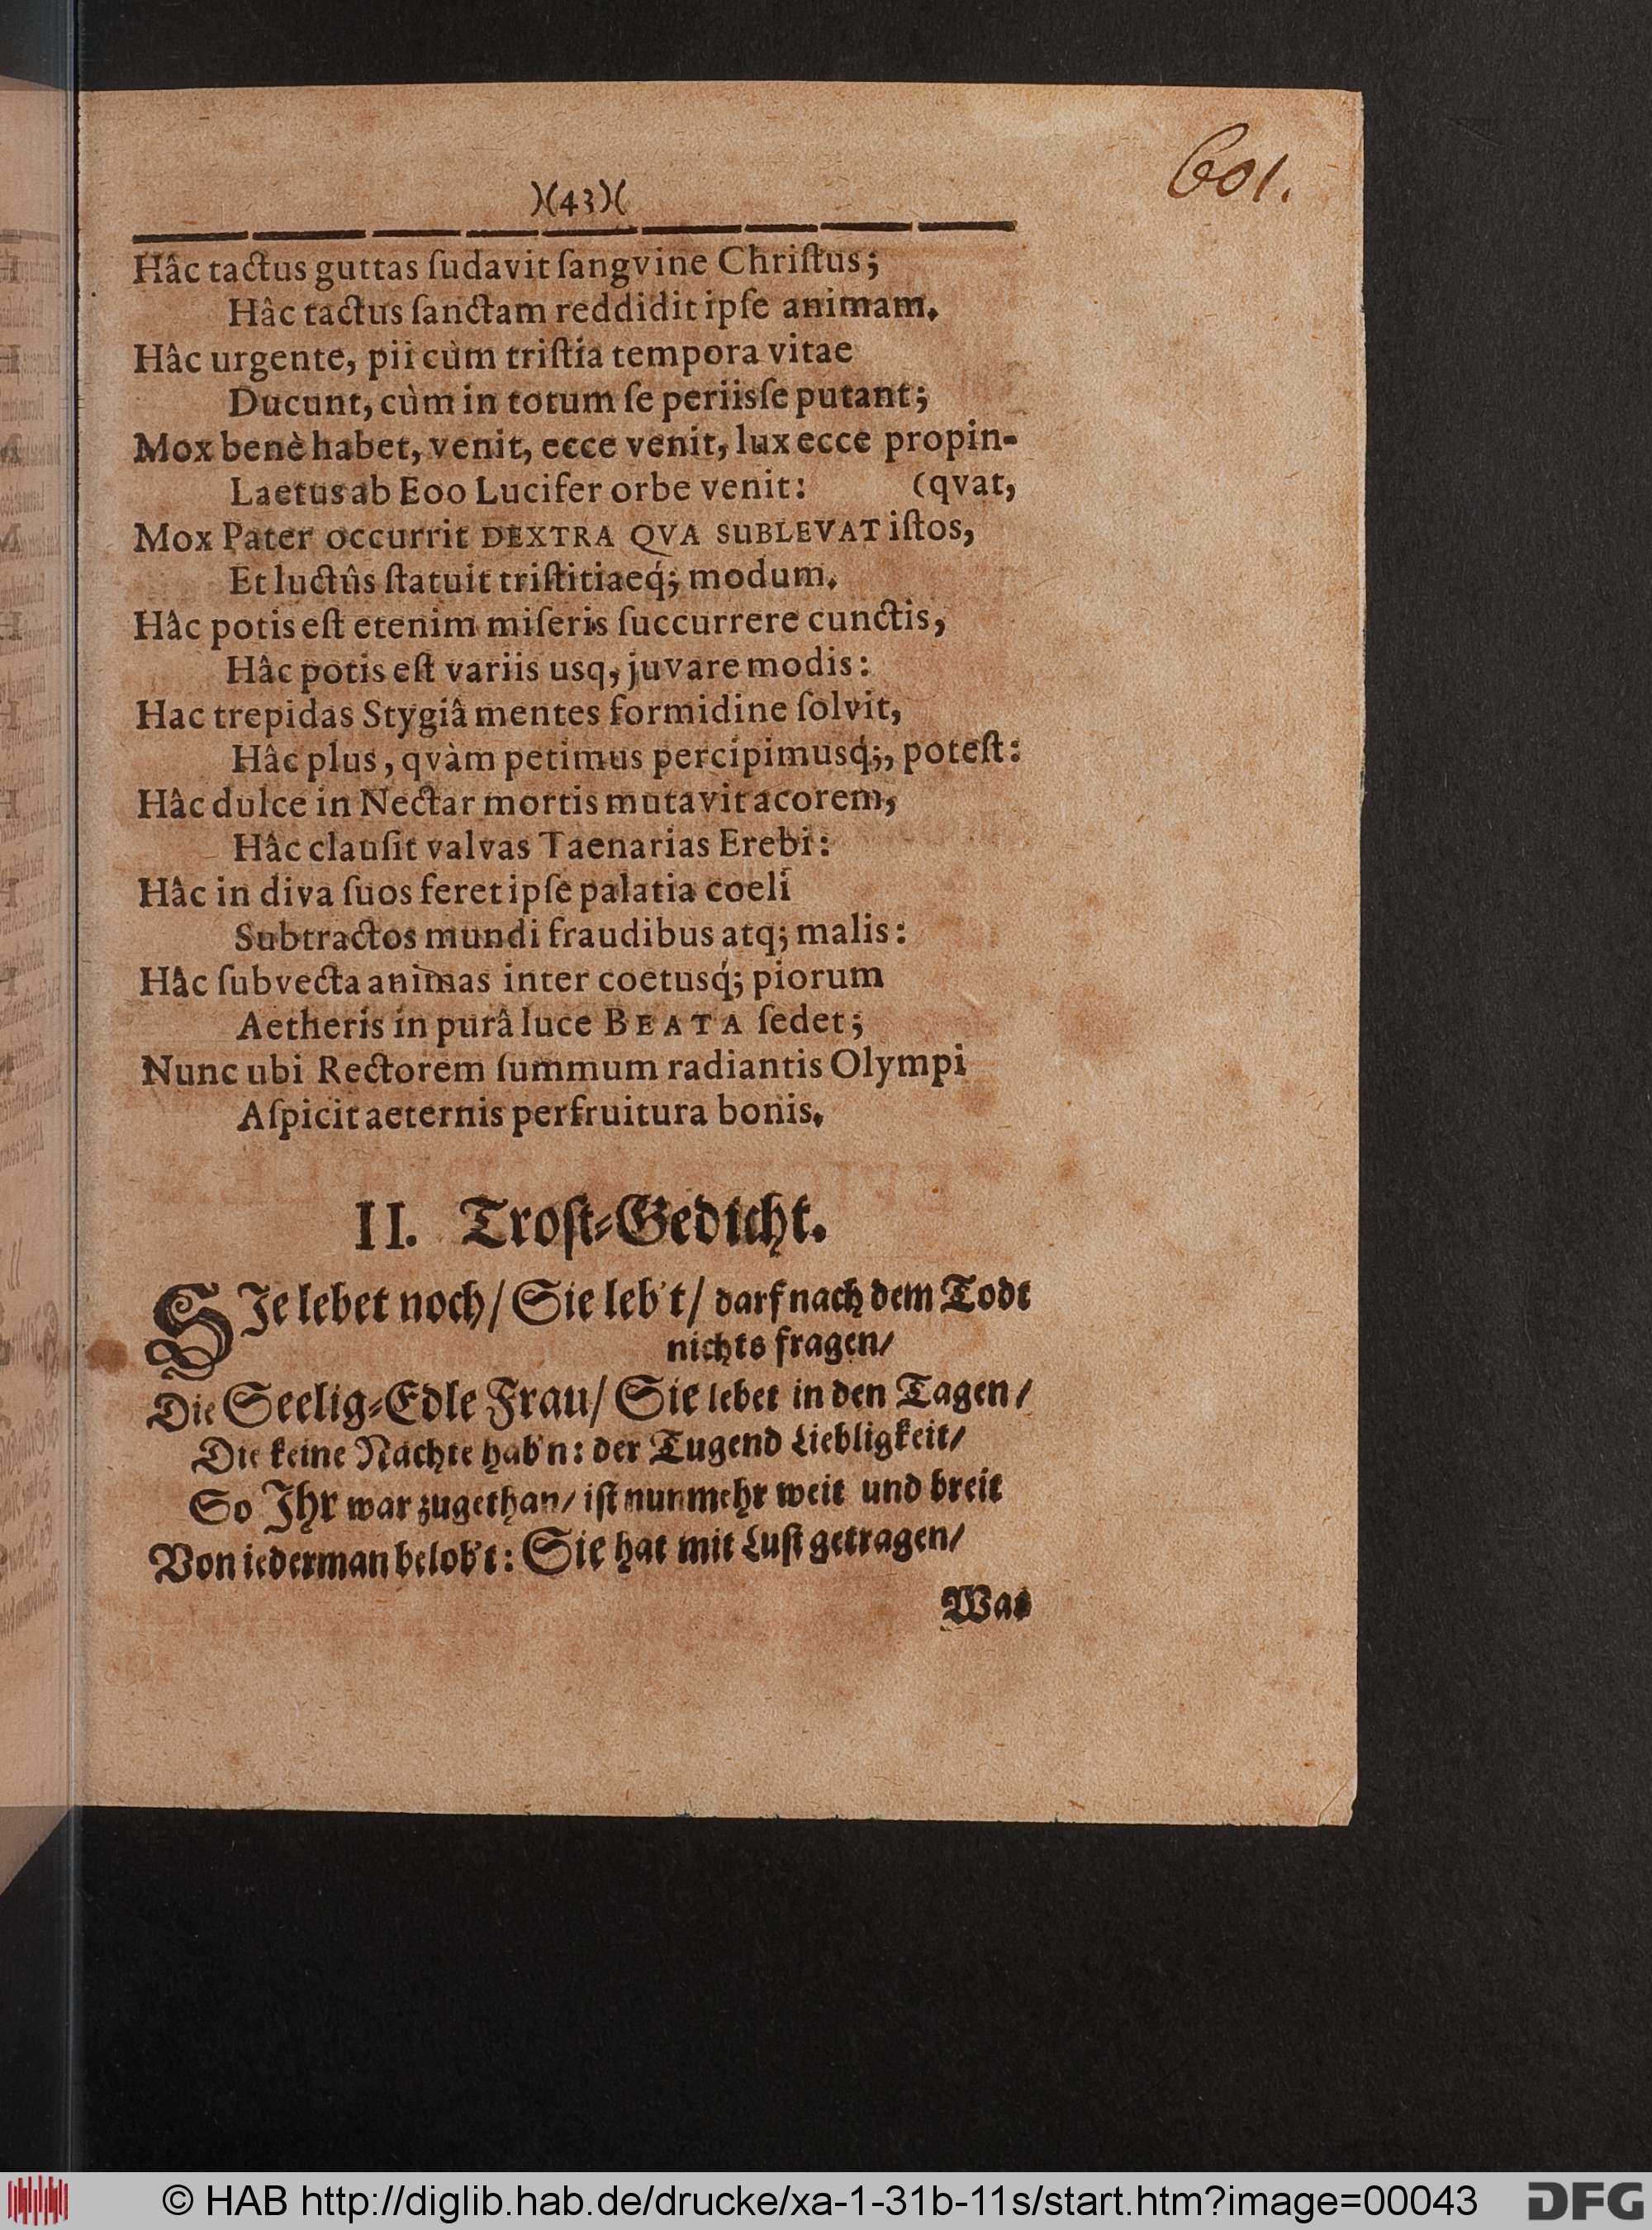 601.
)(43)(
Hâc tactus guttas ſudavit ſangvine Chriſtus;
Hâc tactus ſanctam reddidit ipſe animam.
Hâc urgente, pii cùm triſtia tempora vitae
Ducunt, cùm in totum ſe periisſe putant;
Mox benè habet, venit, ecce venit, lux ecce propin-
Laetus ab Eoo Lucifer orbe venit: (qvat,
Mox Pater occurrit DEXTRA QVA SUBLEVAT iſtos,
Et luctûs ſtatuit triſtitiaeq́; modum.
Hâc potis eſt etenim miſeris ſuccurrere cunctis,
Hâc potis eſt variis usq, juvare modis:
Hac trepidas Stygiâ mentes formidine ſolvit,
Hâc plus, qvàm petimus percipimusq́;, poteſt:
Hâc dulce in Nectar mortis mutavit acorem,
Hâc clauſit valvas Taenarias Erebi:
Hâc in diva ſuos feret ipſe palatia coeli
Subtractos mundi fraudibus atq; malis:
Hâc ſubvecta animas inter coetusq́; piorum
Aetheris in purâ luce BEATA ſedet;
Nunc ubi Rectorem ſummum radiantis Olympi
Aſpicit aeternis perfruitura bonis.
II. Troſt-Gedicht.
SIe lebet noch/ Sie leb't/ darf nach dem Todt
nichts fragen/
Die Seelig-Edle Frau/ Sie lebet in den Tagen/
Die keine Nächte hab'n: der Tugend Liebligkeit/
So Ihr war zugethan/ iſt nunmehr weit und breit
Von iederman belob't: Sie hat mit Luſt getragen/
Was
© HAB http://diglib.hab.de/drucke/xa-1-31b-11s/start.htm?image=00043
DFG